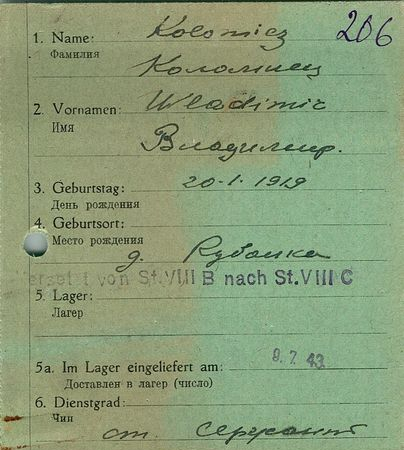 206
1. Name: Kolomiez
Фамилия Коломиец
2. Vornamen: Wladimir
Имя Владимир.
3. Geburtstag: 20.1.1919
День рождения
4. Geburtsort:
Место рождения д.
Versetzt von St.VIII B nach St.VIII C
5. Lager:
Лагерь
5a. Im Lager eingeliefert am: 9.7.43.
Доставлен в лагерь (число)
6. Dienstgrad:
Чин
ст. сержант